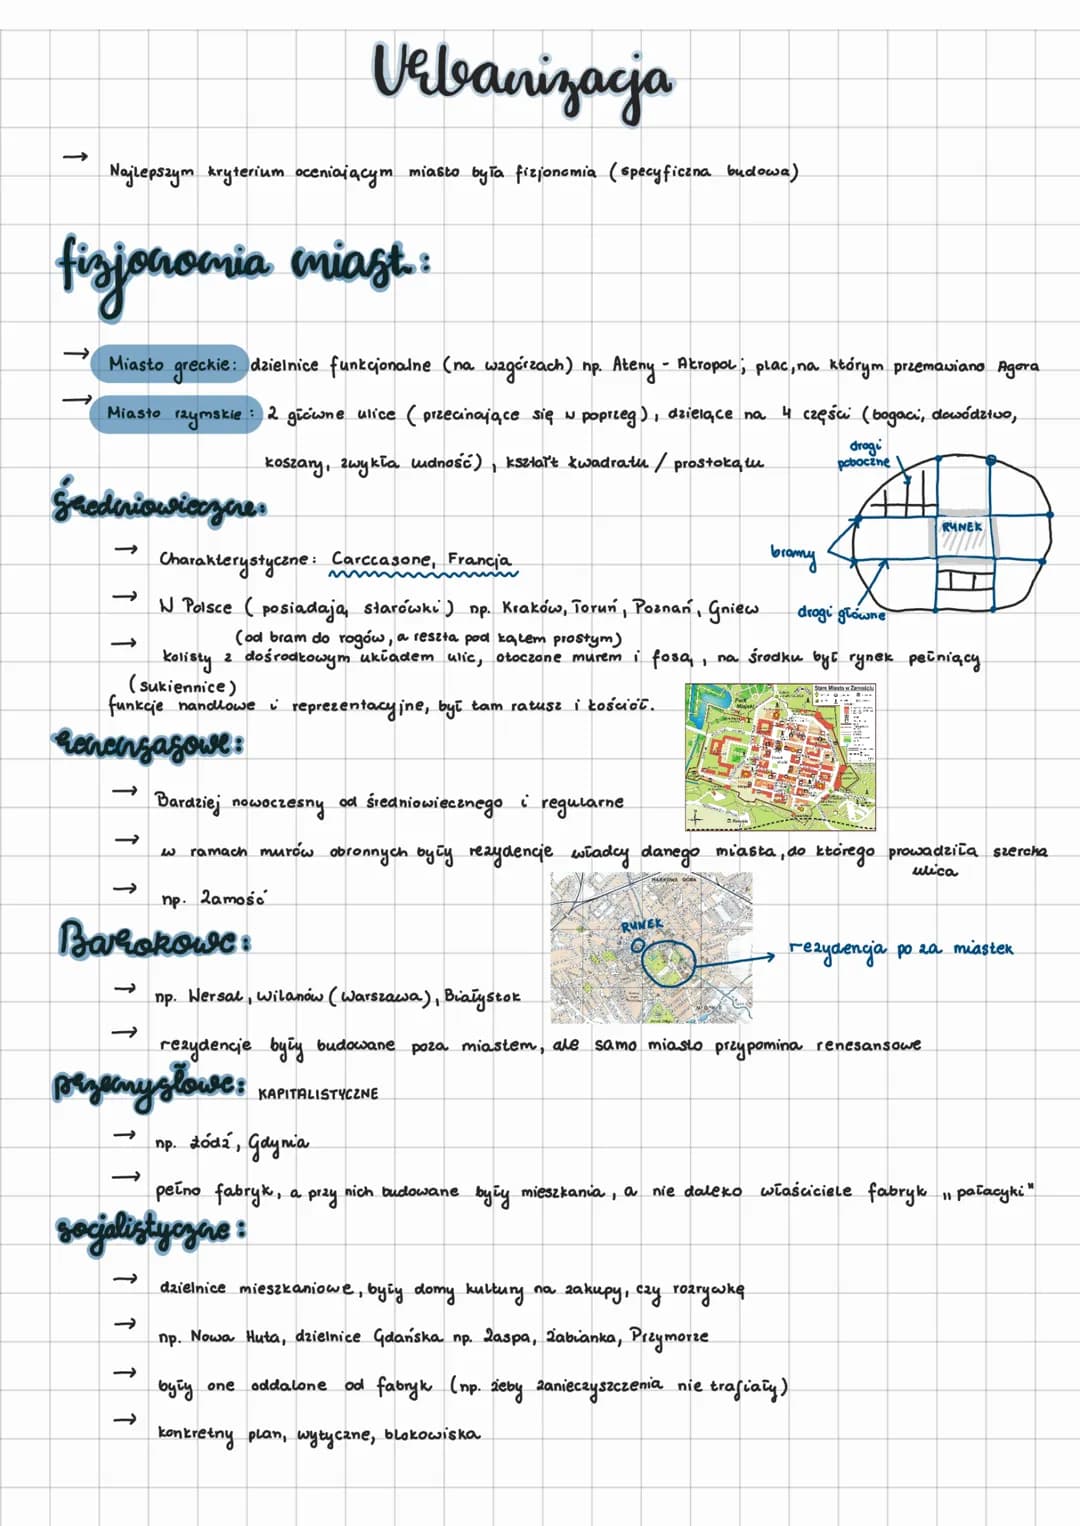 Urbanizacja
→ Najlepszym kryterium oceniającym miasto była fizjonomia (specyficzna budowa)
fizjonomia miast:
→ Miasto greckie: dzielnice funkcjonalne (na wzgórzach) np. Ateny - Akropol; plac, na którym przemawiano Agora
→ Miasto rzymskie: 2 główne ulice (przecinające się w poprzeg), dzielące na 4 części (bogaci, dowództwo,
koszary, zwykła ludność), kształt kwadratu / prostokątu
drogi
poboczne
RYNEK
bramy
drogi główne
średniowieczne:
→ Charakterystyczne: Carccasone, Francja
→ W Polsce (posiadają starówki) np. Kraków, Toruń, Poznań, Gniew
(od bram do rogów, a reszta pod kątem prostym)
→ kolisty z dośrodkowym układem ulic, otoczone murem i fosą, na środku był rynek pełniący
(sukiennice)
funkcje handlowe i reprezentacyjne, był tam ratusz i kościół.
Stare Miasto w Zamościu
Park
Miejski
renensasowe:
→ Bardziej nowoczesny od średniowiecznego i regularne
→ w ramach murów obronnych były rezydencje władcy danego miasta, do którego prowadziła szeroka
ulica
→ np. Zamość
RYNEK
rezydencja po za miastek
Barokowe:
→ np. Wersal, Wilanów (Warszawa), Białystok
→ rezydencje były budowane poza miastem, ale samo miasto przypomina renesansowe
przemysłowe: KAPITALISTYCZNE
→ np. Łódź, Gdynia
→ pełno fabryk, a przy nich budowane były mieszkania, a nie daleko właściciele fabryk „pałacyki"
socjalistyczne:
→ dzielnice mieszkaniowe, były domy kultury na zakupy, czy rozrywkę
→ np. Nowa Huta, dzielnice Gdańska np. Zaspa, Żabianka, Przymorze
→ były one oddalone od fabryk (np. żeby zanieczyszczenia nie trafiały)
→ konkretny plan, wytyczne, blokowiska